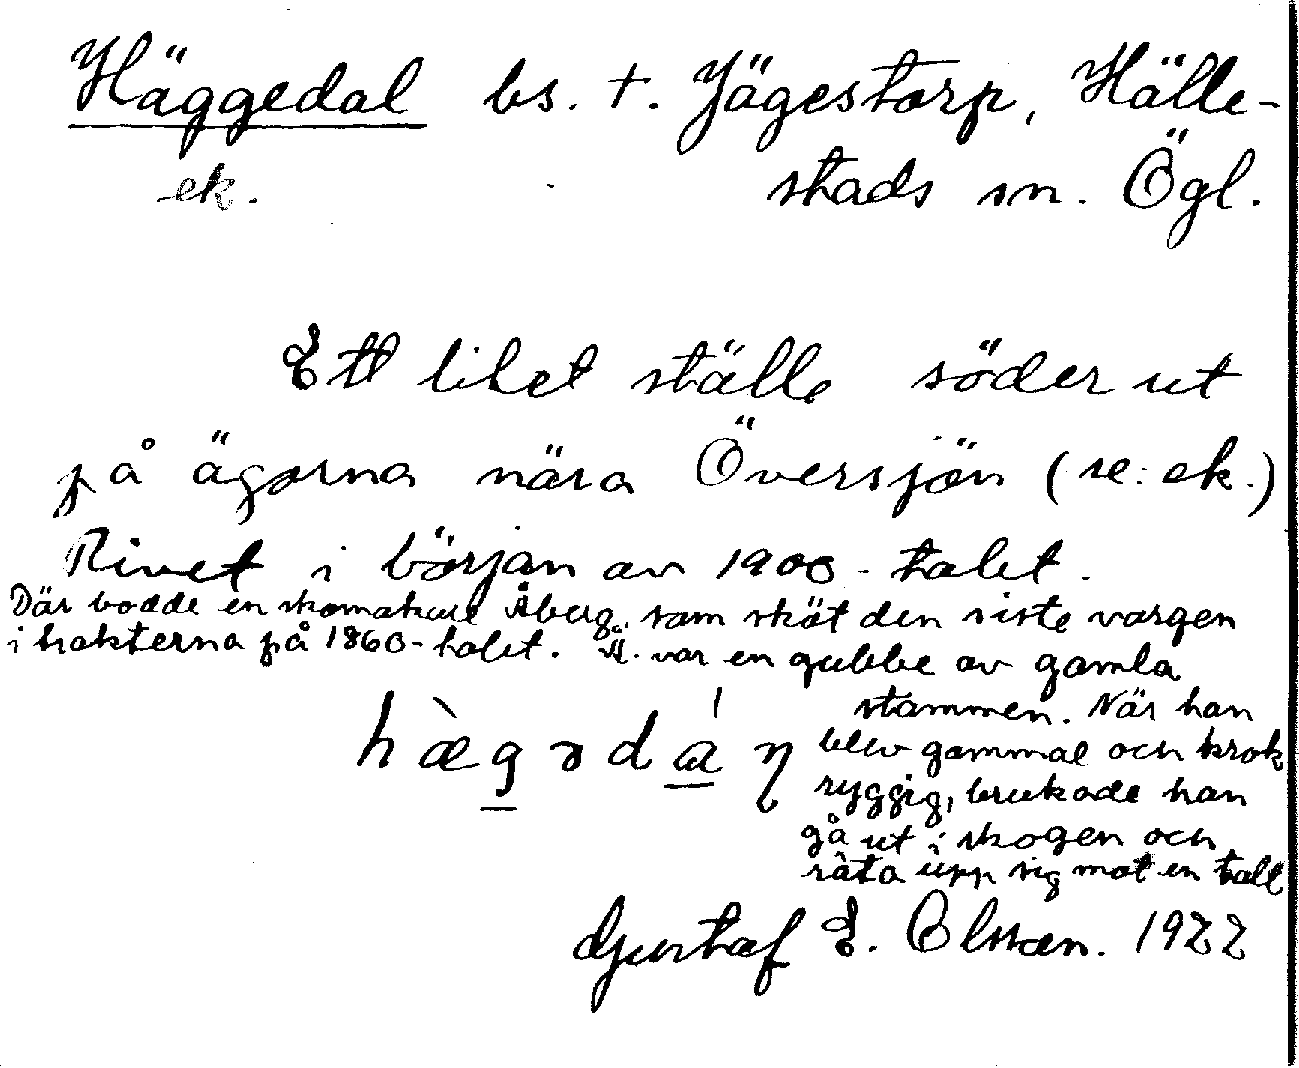 Häggedal bs. t. Jägestorp, Hälle-
ek. stads sn. Ögl.
Ett litet ställe söder ut
på ägorna nära Översjön (se: ek.)
Rivet i början av 1900-talet.
Där bodde en skomakare Åberg, som sköt den siste vargen
i trakterna på 1860-talet. Å. var en gubbe av gamla
stammen. När han
blev gammal och krok
ryggig, brukade han
gå ut i skogen och
räta upp sig mot en tall
Gustaf E. Olsson. 1922